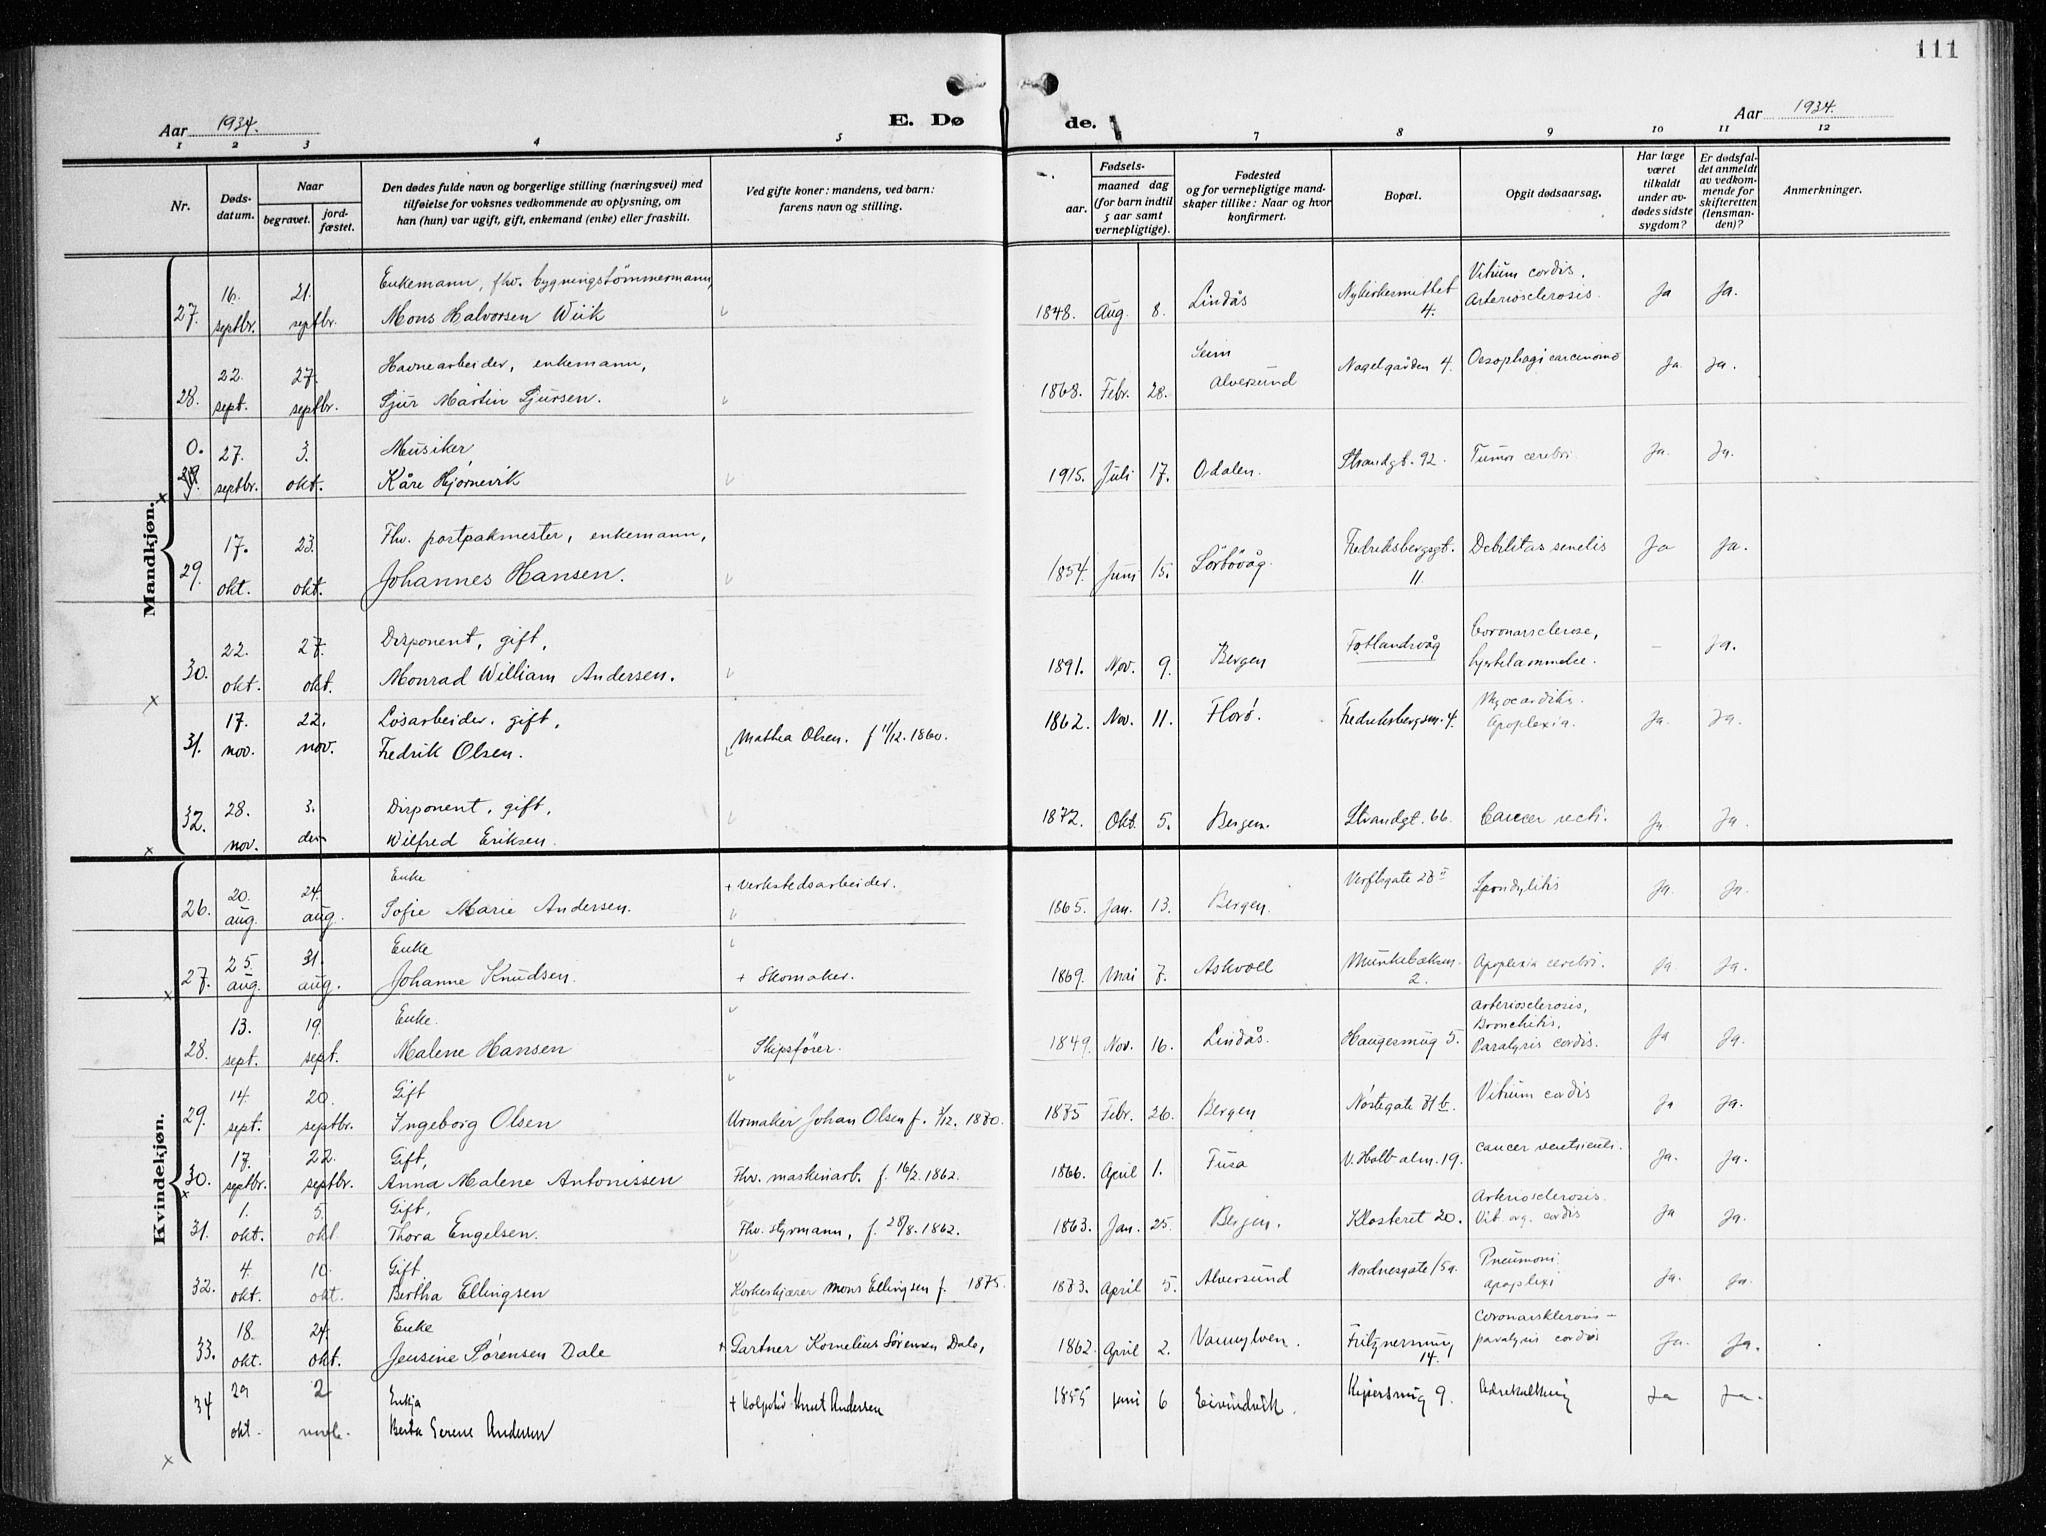 111
Aar 1934.
E. Døde.
Aar 1934.
1 2 3 4 5 7 8 9 10 11 12
Nr.
Døds-datum.
Naar
begravet.
jord-fæstet.
Den dødes fulde navn og borgerlige stilling (næringsvei) med
tilføielse for voksnes vedkommende av oplysning, om
han (hun) var ugift, gift, enkemand (enke) eller fraskilt.
Ved gifte koner: mandens, ved barn:
farens navn og stilling.
Fødsels-
aar.
maaned dag
(for barn indtil
5 aar samt
vernepligtige).
Fødested
og for vernepligtige mand-
skaper tillike: Naar og hvor
konfirmert.
Bopæl.
Opgit dødsaarsag.
Har læge
været
tilkaldt
under av-
dødes sidste
sygdom?
Er dødsfal-
det anmeldt
av vedkom-
mende for
skifteretten
(lensman-
den)?
Anmerkninger.
Mandkjøn.
27. 16. septbr. 21. septbr. Enkemann, fhv. bygningstömmermann,
Mons Halvorsen Wiik
1848. Aug. 8. Lindås Nykirkesmuttet 4. Vitium cordis.
Arteriosclerosis. Ja Ja.
28. 22. sept. 27. septbr. Havnearbeider, enkemann,
Sjur Martin Sjursen.
1868. Febr. 28. Seim
Alversund Nagelgården 4. Oesophagi carcinoma Ja. Ja.
0. 27. septbr. 3. okt. Musiker
Kåre Hjørnevik
1915. Juli 17. Odalen. Strandgt. 92. Tumor cerebri Ja. Ja.
29. 17. okt. 23. okt. Fhv. postpakmester, enkemann,
Johannes Hansen.
1854. Juni 15. Sörbövåg. Fredriksbergsgt. 11 Debilitas senilis Ja Ja.
30. 22. okt. 27. okt. Disponent, gift,
Monrad William Andersen.
1891. Nov. 9. Bergen Fotlandsvåg Coronarsclerose,
hjertelammelse. – Ja.
31. 17. nov. 22. nov. Løsarbeider. gift,
Fredrik Olsen.
Mathea Olsen. f 11/12. 1860.
1862. Nov. 11. Florø. Fredriksbergsm. 4. Myocarditis.
Apoplexia. Ja. Ja.
32. 28. nov. 3. des Disponent, gift,
Wilfred Eriksen.
1872. Okt. 5. Bergen. Strandgt. 66. Cancer recti. Ja. Ja.
Kvindekjøn.
26. 20. aug. 24. aug. Enke
Sofie Marie Andersen.
+ Verkstedsarbeider.
1865. Jan. 13. Bergen. Verftsgate 28 II Spondylitis Ja. Ja.
27. 25. aug. 31. aug. Enke
Johanne Knudsen.
+ Skomaker.
1869. Mai 7. Askvoll Munkebæksm. 2. Apoplexia cerebri. Ja. Ja.
28. 13. sept. 19. sept. Enke.
Malene Hansen
Skipsfører.
1849. Nov. 16. Lindås. Haugesmug 5. Arteriosclerosis,
Bronchitis,
Paralysis cordis. Ja Ja.
29. 14. sept. 20. septbr. Gift
Ingeborg Olsen
Urmaker Johan Olsen f. 2/12. 1870.
1875 Febr. 26. Bergen Nøstegate 71 b. Vitium cordis Ja Ja.
30. 17. septbr. 22. septbr. Gift,
Anna Malene Antonissen
Fhv. maskinarb. f. 16/2. 1862.
1866. April 1. Fusa V. Holb. alm. 19. Cancer ventriculi. Ja. Ja.
31. 1. okt. 5. okt. Gift,
Thora Engelsen.
Fhv. styrmann, f. 28/8. 1862.
1863. Jan. 25. Bergen. Klosteret 20. Arteriosclerosis.
Vit. org. cordis Ja Ja.
32. 4. okt. 10. okt. Gift
Bertha Ellingsen
Korkeskjærer Mons Ellingsen f. 1875.
1873. April 5. Alversund Nordnesgate 15a. Pneumoni
Apoplexi Ja. Ja.
33. 18. okt. 24. okt. Enke
Jensine Sørensen Dale
+ Gartner Kornelius Sørensen Dale,
1862. April 2. Vannylven. Fritznersmug 14. Coronarsklerosis –
paralysis cordis Ja. Ja.
34 29 okt. 2 Enkja
Berta Serene Andersen
+ Knut Andersen
1855 Juni 6 Eivindvik. Kipersmug 9. Adrekalking Ja Ja.